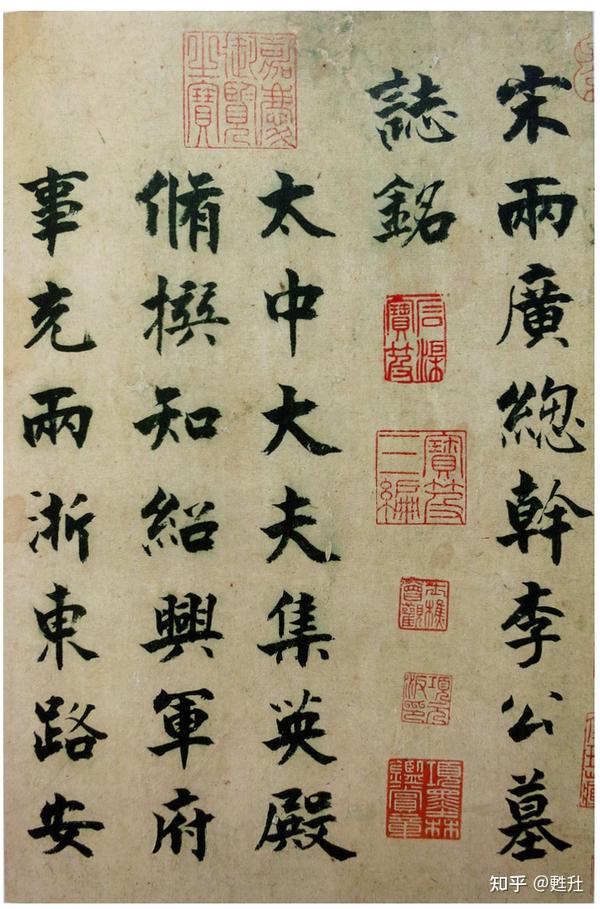 宋兩廣總幹李公墓
誌銘
太中大夫集英殿
脩撰知紹興軍府
事充兩浙東路安
嘉慶御覽之寶
寶笈三編
項元汴印
項墨林鑑賞章
知乎 @甦壮